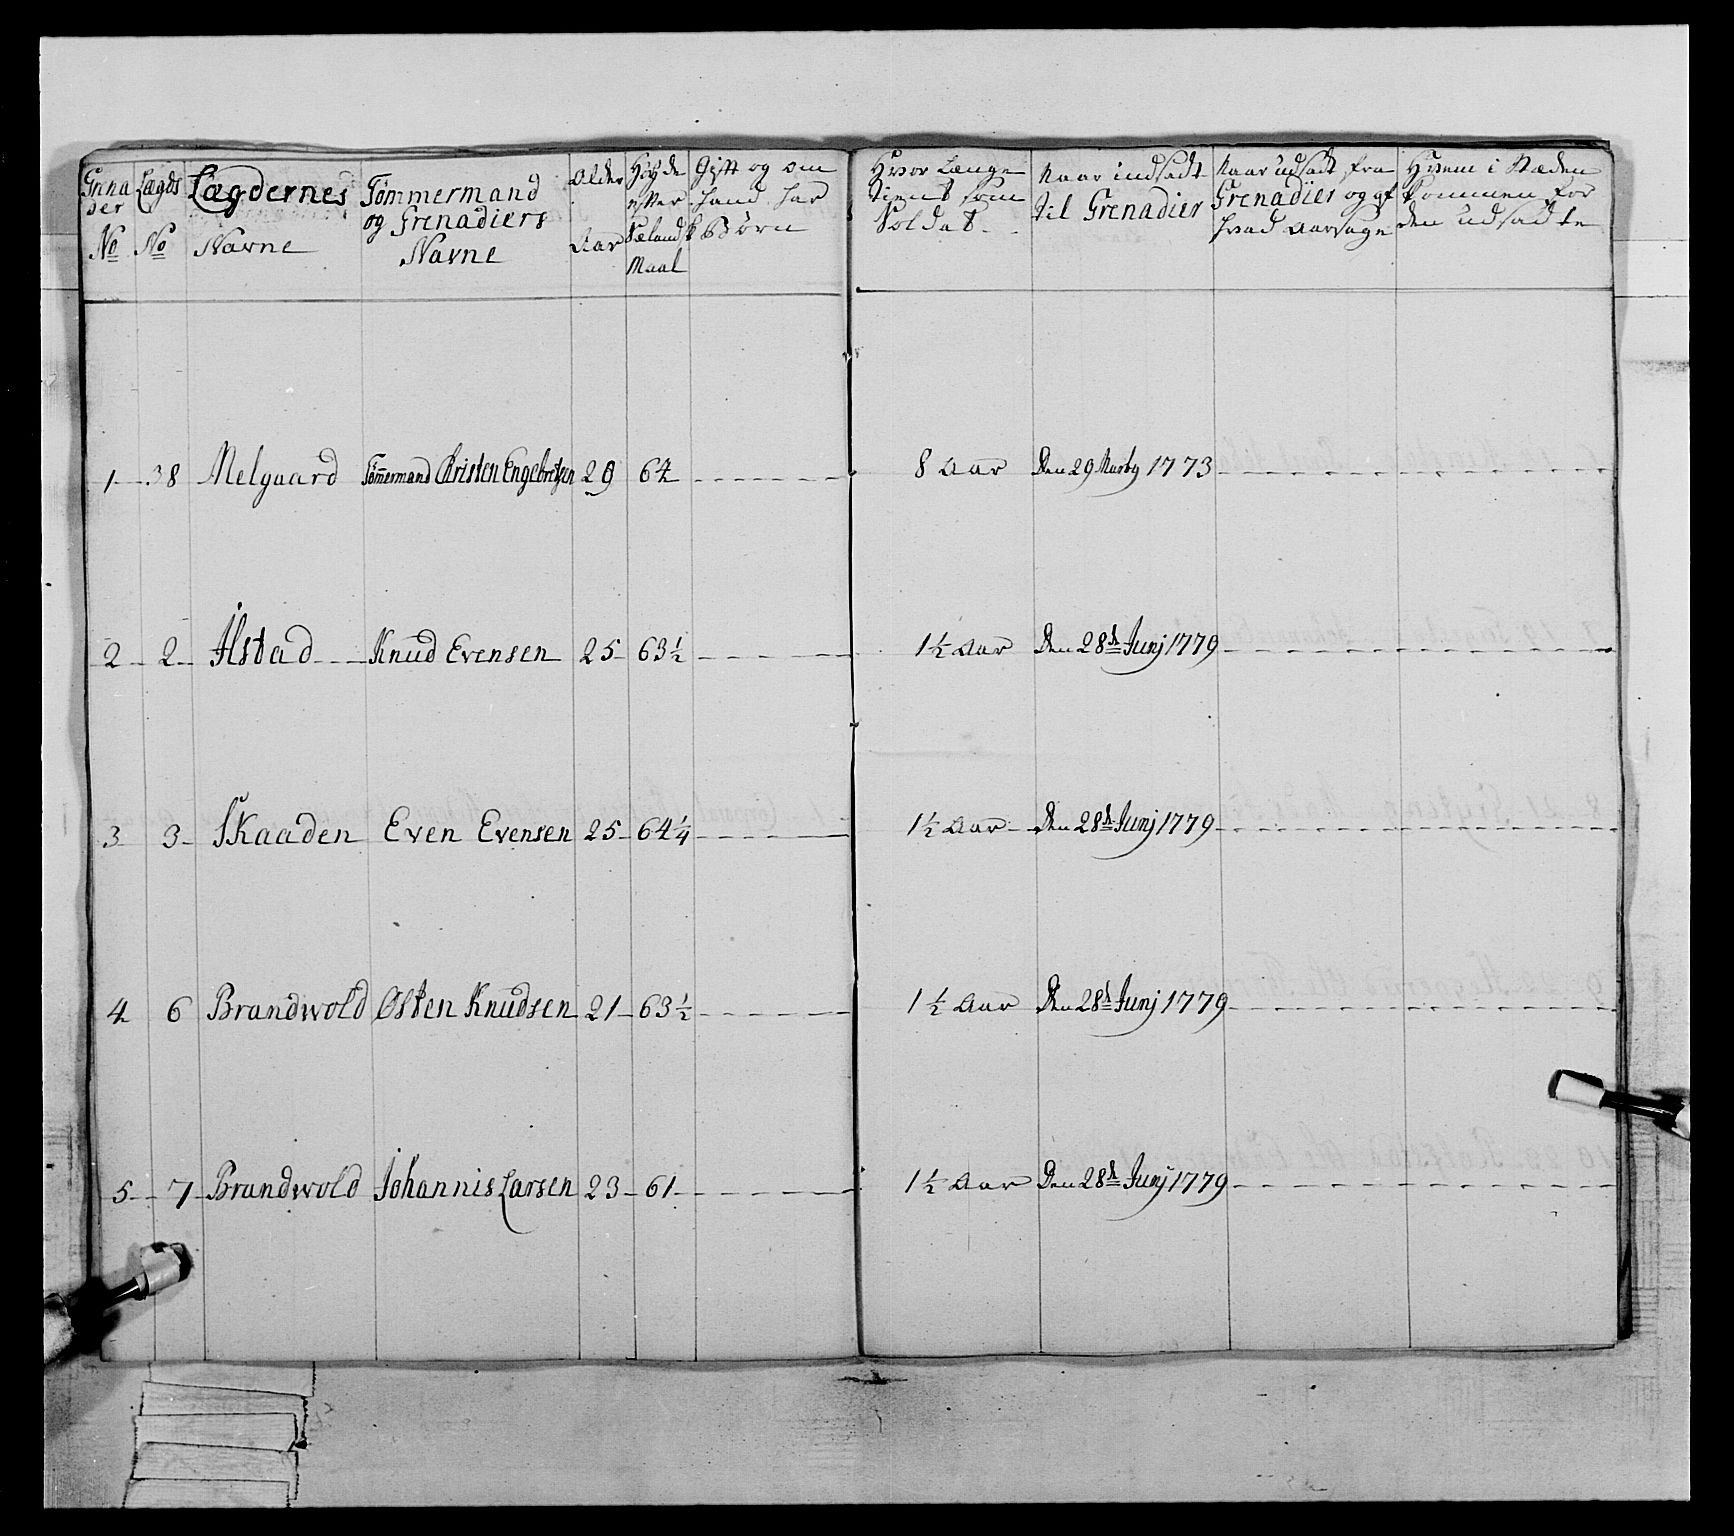 Grna der No | Lægds No | Lægdernes Navne | Tømmermand og Grenadiers Navne | Alder Aar | Høyde efter Sælandsk Maal | Gift og om hand har Børn | Hvor Længe tient som Soldat | Naar indsadt til Grenadier | Naar udsadt fra Grenadier og af hvad aarsage | Hvem i Stæden kommen for den udsadte
1 38 Melgaard Tømmermand Christen Engebretsen 29 64 8 Aar Den 29 Martz 1773
2 2 Alstad Knud Evensen 25 63 1/2 1 1/2 Aar Den 28de Junj 1779
3 3 Skaaden Even Evensen 25 64 1/4 1 1/2 Aar Den 28de Junj 1779
4 6 Brandwold Østen Knudsen 21 63 1/2 1 1/2 Aar Den 28de Junj 1779
5 7 Brandwold Johannis Larsen 23 61 1 1/2 Aar Den 28de Junj 1779